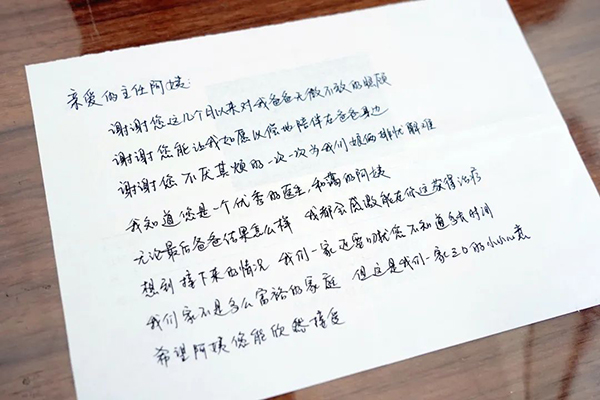 亲爱的主任阿姨:
谢谢您这几个月以来对我爸爸无微不致的照顾
谢谢您能让我如愿以偿的陪伴在爸爸身边
谢谢您不厌其烦的一次一次为我们娘俩排忧解难
我知道您是一个优秀的医生,和蔼的阿姨
无论最后爸爸结果怎么样 我都会感激能在你这获得治疗
想到接下来的情况 我们一家还要叨扰您不知道多长时间
我们家不是多么富裕的家庭 但这是我们一家三口的小小心意
希望阿姨您能欣然接受